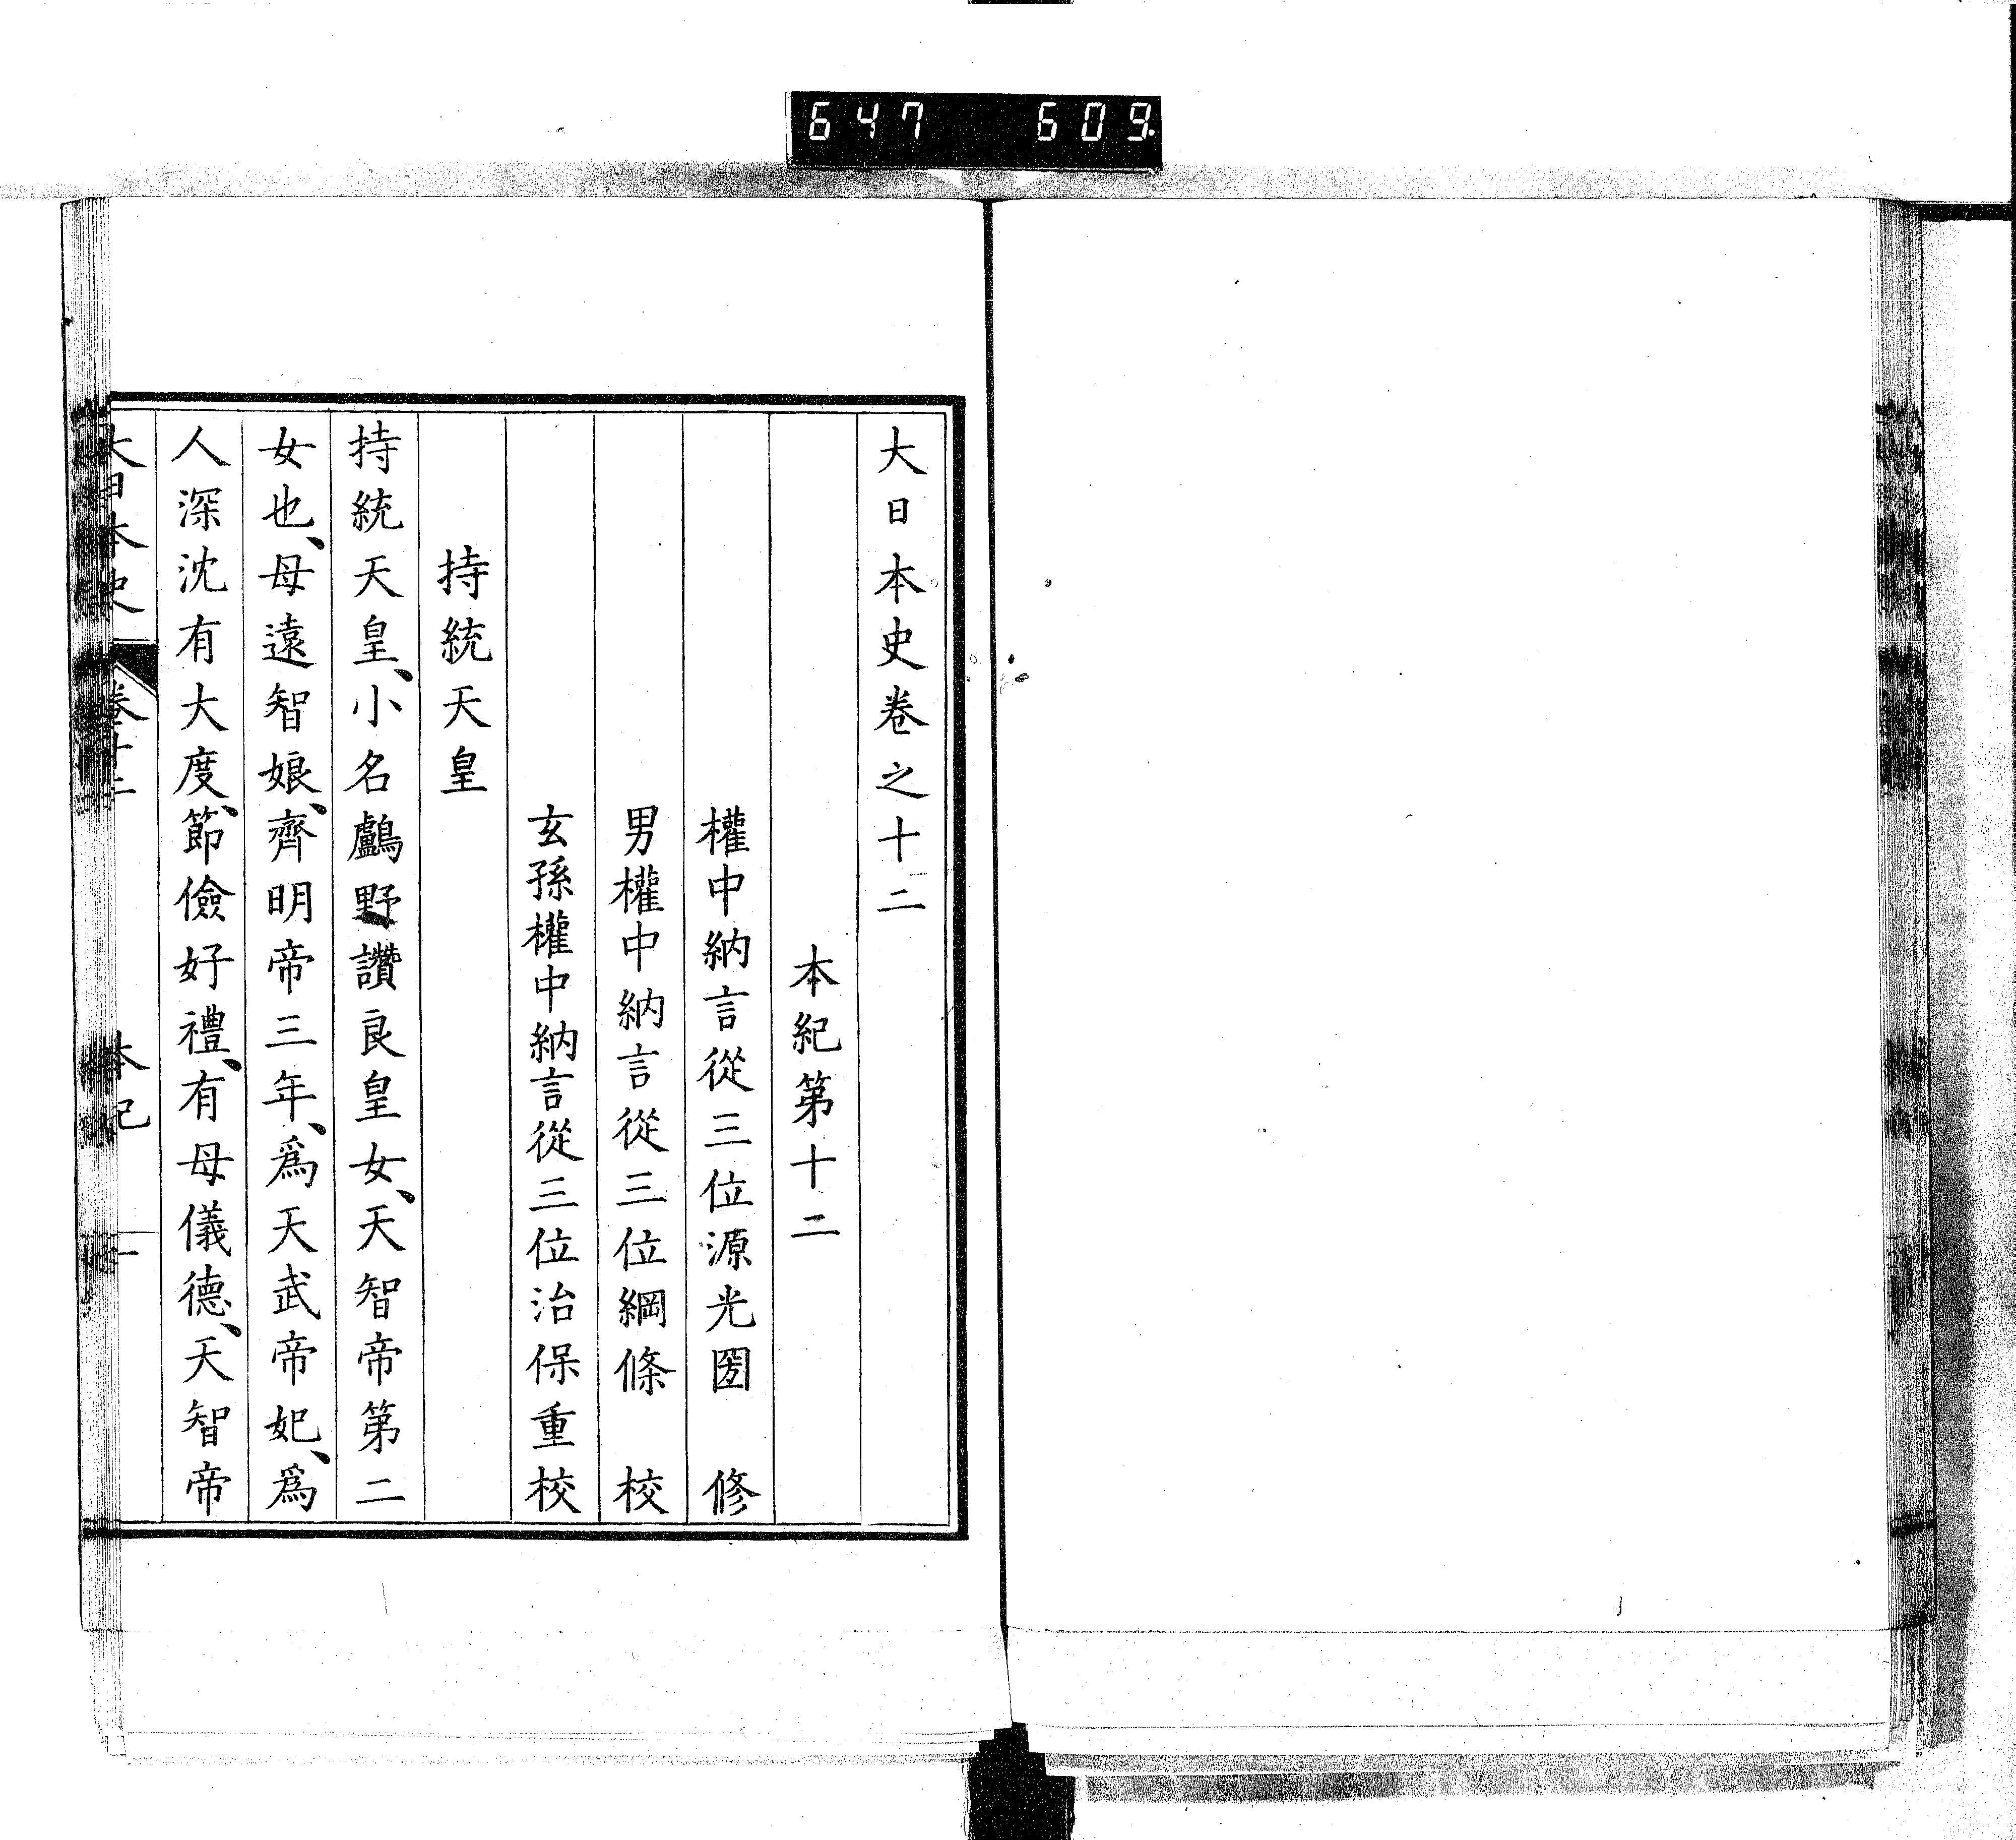 647 609
大日本史卷之十二
本紀第十二
權中納言從三位源光圀 修
男權中納言從三位綱條 校
玄孫權中納言從三位治保重校
持統天皇
持統天皇、小名鸕野讚良皇女、天智帝第二
女也、母遠智娘、齊明帝三年、爲天武帝妃、爲
人深沈有大度、節儉好禮、有母儀德、天智帝
大日本史 卷十二 本紀 一